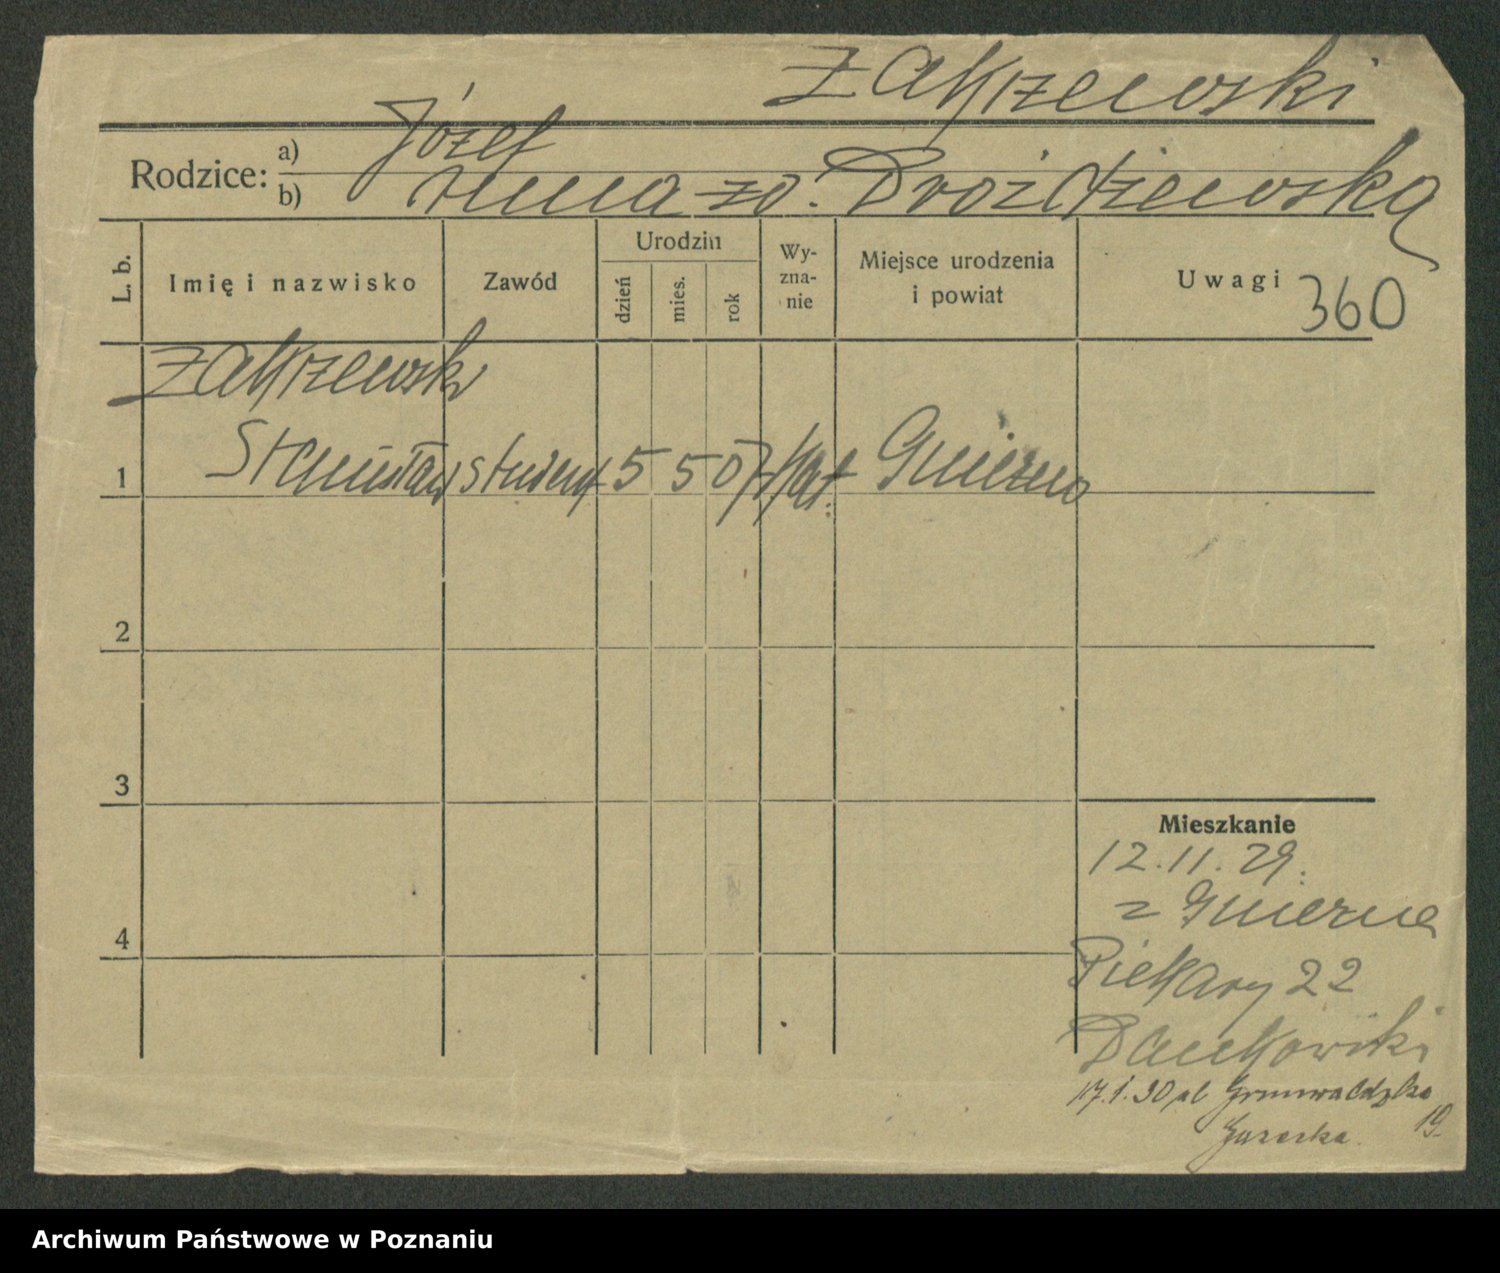 Zakrzewski
Rodzice: a) Józef
b) Anna zd. Drożdżewska
L. b.
Imię i nazwisko
Zawód
Urodzin
dzień
mies.
rok
Wy-
zna-
nie
Miejsce urodzenia
i powiat
Uwagi
360
Zakrzewski
1 Stanisław student 5 5 07 kat. Gniezno
2
3
Mieszkanie
12.11.29.
z Gniezna
4
Piekary 22
Dankowski
17.1.30 pl Grunwaldzka
19.
Archiwum Państwowe w Poznaniu